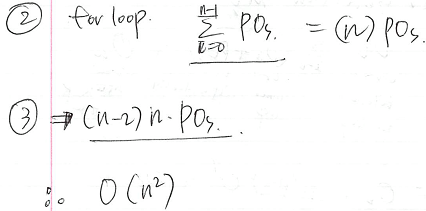 ② for loop. n-1 Σ i=0 POs. = (n) POs.
③ ⇒ (n-2) n · POs.
∴ O(n²)